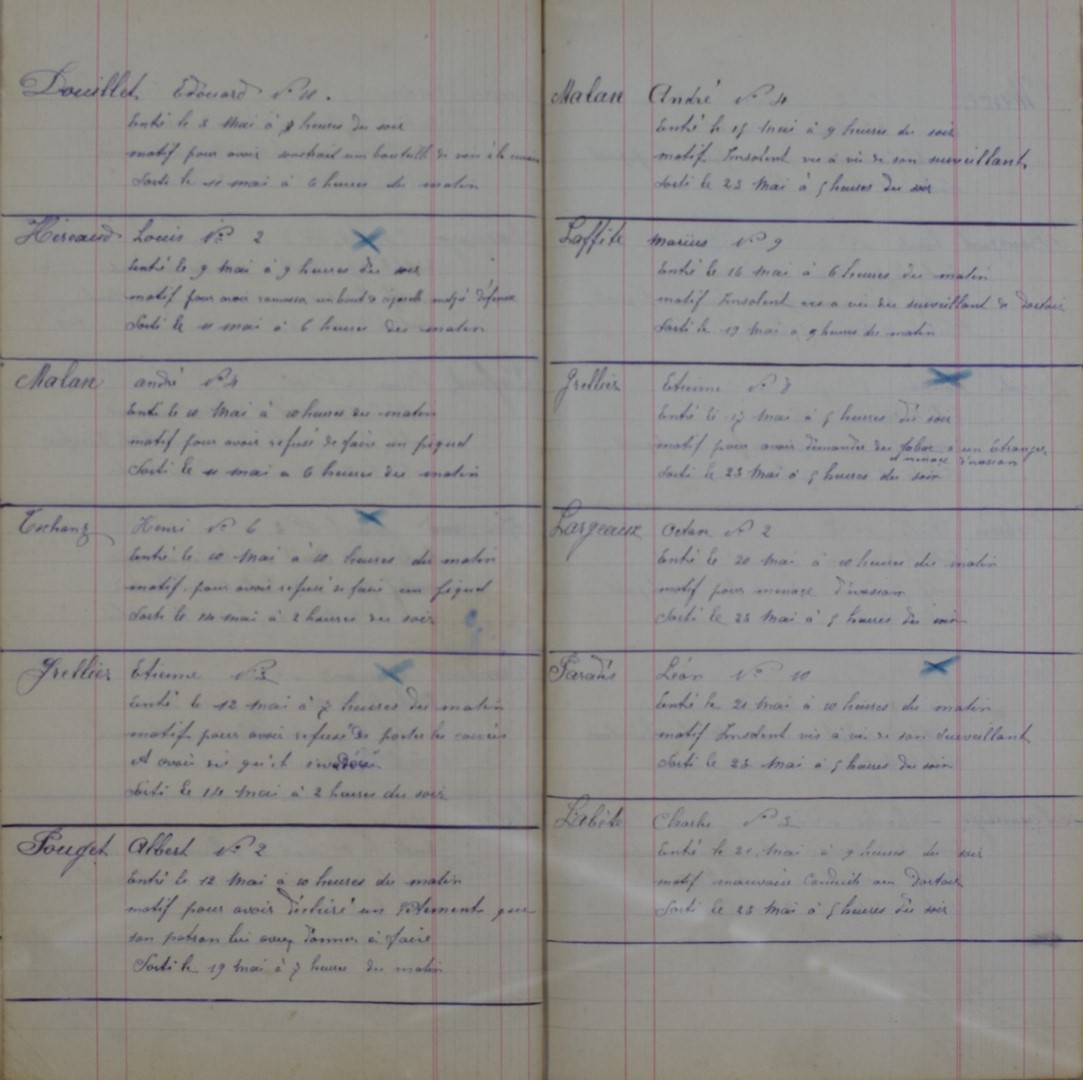 Douillet Edouard N° 11.
Entré le 3 Mai à 8 heures du soir
motif pour avoir soustrait un bouteille de vin à le
Sorti le 11 mai à 6 heures du matin
Héreaud Louis N° 2
Entré le 9 Mai à 9 heures du soir
motif pour avoir ramasser un bout de cigarette malgré défense
Sorti le 11 mai à 6 heures du matin
Malan andré N° 4
Entré le 10 Mai à 10 heures du matin
motif pour avoir refusé de faire un piquet
Sorti le 11 mai a 6 heures du matin
Tschanz Henri N° 6
Entré le 10 Mai à 10 heures du matin
motif pour avoir refusé de faire un piquet
Sorti le 14 mai à 2 heures du soir
Grellier Etienne N° 3
Entré le 12 Mai à 7 heures du matin
motif pour avoir refusé de porter les
Et avoir dit qu'il
Sorti le 14 mai à 2 heures du soir
Pouget Albert N° 2
Entré le 12 Mai à 10 heures du matin
motif pour avoir déchiré un Vêtement que
son patron lui avez donner à faire
Sorti le 19 Mai à 7 heures du matin
Malan André N° 4
Entré le 15 Mai à 9 heures du soir
motif Insolent vis à vis de son surveillant
Sorti le 23 Mai à 5 heures du soir
Laffite Marius N° 9
Entré le 16 Mai à 6 heures du matin
motif Insolent vis a vis du surveillant de dortoir
Sorti le 19 Mai a 9 heures du matin
Grellier Etienne N° 3
Entré le 17 Mai à 5 heures du soir
motif pour avoir demander du tabac à un étranger
et menace d'évasion
Sorti le 23 Mai à 5 heures du soir
Largeaux Octan N° 2
Entré le 20 Mai à 10 heures du matin
motif pour menace d'évasion
Sorti le 23 Mai à 5 heures du soir
Paradis Léon N° 10
Entré le 21 Mai à 10 heures du matin
motif Insolent vis à vis de son surveillant
Sorti le 23 Mai à 5 heures du soir
Labête Charles N° 3
Entré le 21 Mai à 9 heures du soir
motif mauvaise Conduite au Dortoir
Sorti le 23 Mai à 5 heures du soir